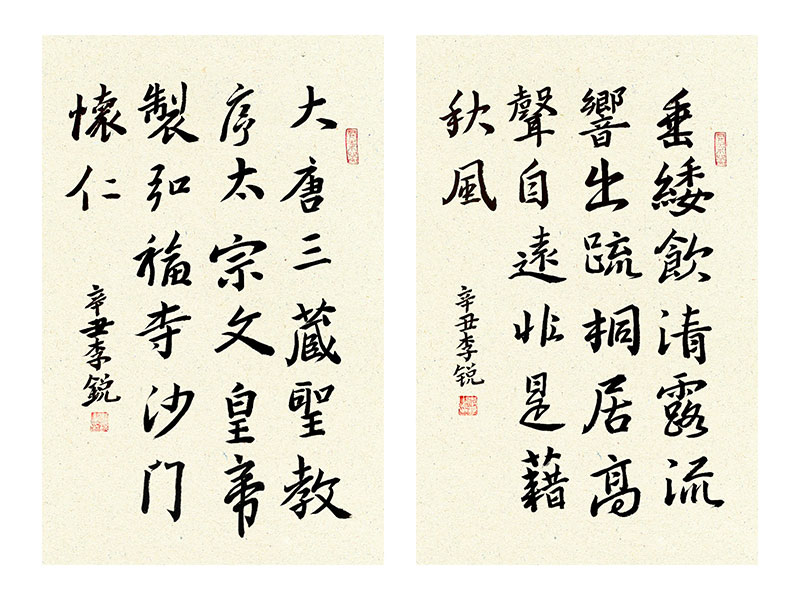 垂緌飲清露流
響出疏桐居高
聲自遠非是藉
秋風
辛丑李锐
大唐三藏聖教
序太宗文皇帝
製弘福寺沙门
懷仁
辛丑李銳